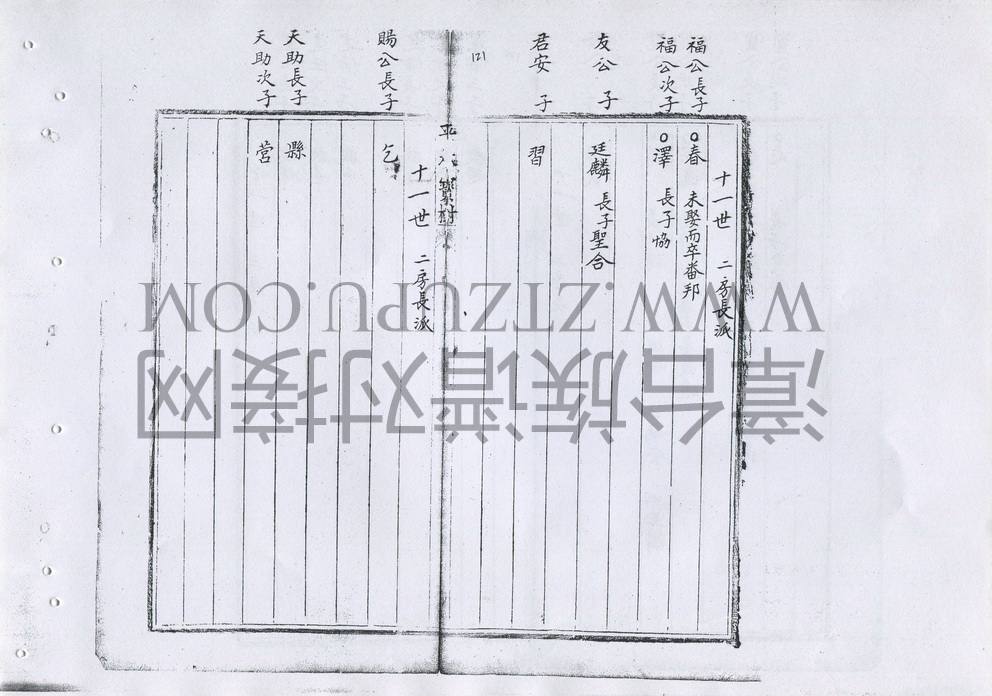 十一世 二房長派
福公長子
春 未娶而卒番邦
福公次子
澤 長子協
友公子
廷麟 長子聖合
君安子
習
121
平
十一世 二房長派
賜公長子
乞
天助長子
縣
天助次子
营
WWW.ZTZUPU.COM
漳台族谱对接网